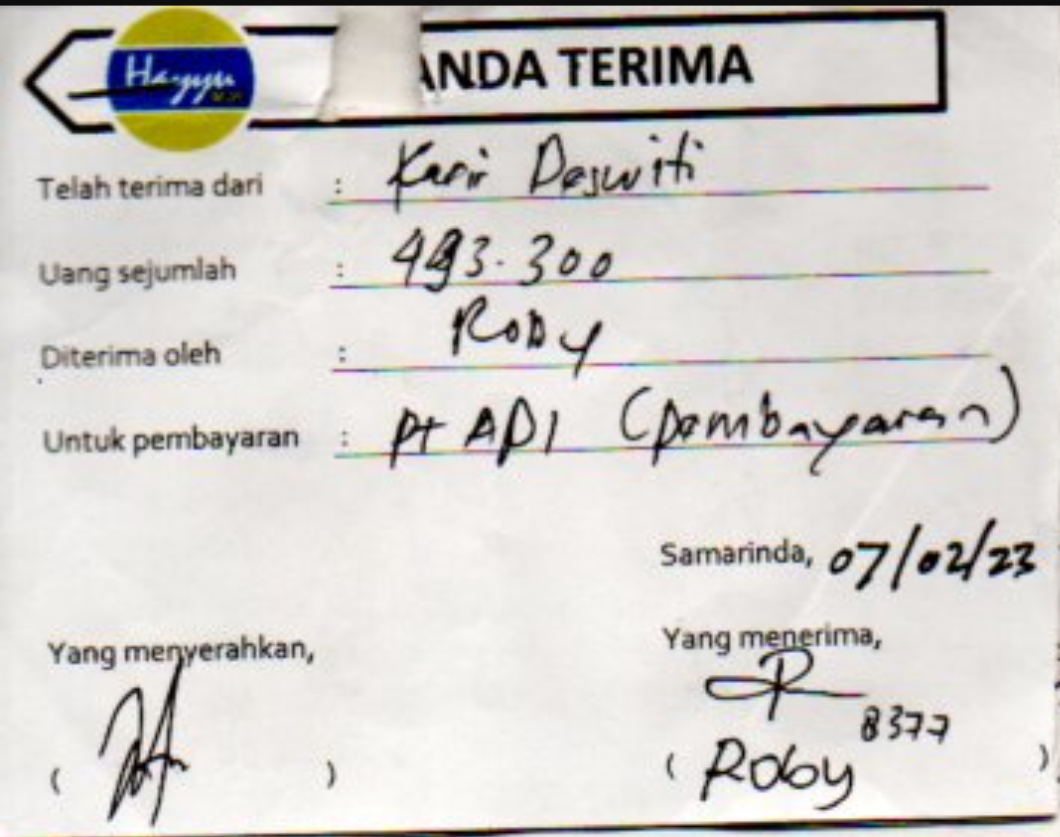 Hayyu
ANDA TERIMA
Telah terima dari : Karir Deswiti
Uang sejumlah : 493.300
Diterima oleh : Roby
Untuk pembayaran : pt ADI (pembayaran)
Samarinda, 07/02/23
Yang menyerahkan,
Yang menerima,
8377
( )
( Roby )